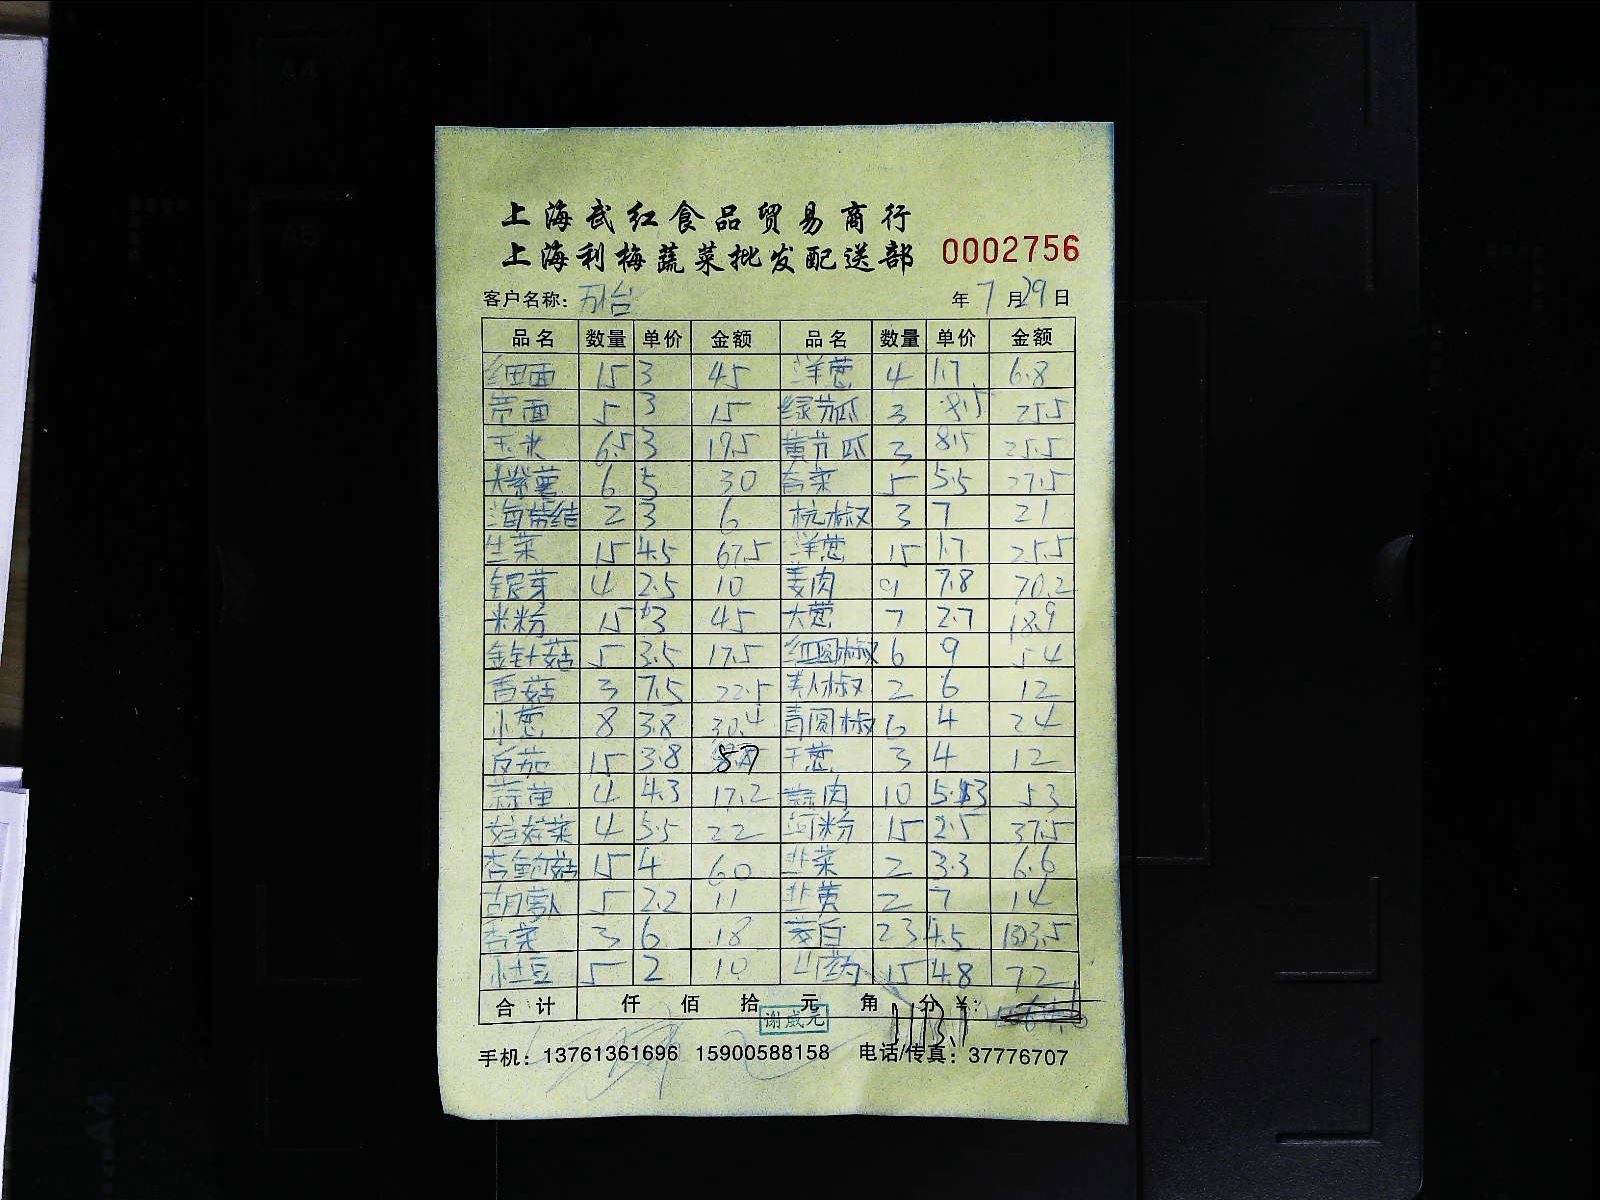 上海武红食品贸易商行
上海利梅蔬菜批发配送部 0002756
客户名称: 万台 年 7 月 29 日
品名 数量 单价 金额 品名 数量 单价 金额
细面 15 3 45 洋葱 4 1.7 6.8
宽面 5 3 15 绿节瓜 3 8.5 25.5
玉米 6.5 3 19.5 黄节瓜 3 8.5 25.5
大紫薯 6 5 30 香菜 5 5.5 27.5
海带结 2 3 6 杭椒 3 7 21
生菜 15 4.5 67.5 洋葱 15 1.7 25.5
银芽 4 2.5 10 姜肉 9 7.8 70.2
米粉 15 3 45 大葱 7 2.7 18.9
金针菇 5 3.5 17.5 红圆椒 6 9 54
香菇 3 7.5 22.5 美人椒 2 6 12
小葱 8 3.8 30.4 青圆椒 6 4 24
反茄 15 3.8 57 干葱 3 4 12
蒜苗 4 4.3 17.2 蒜肉 10 5.3 53
娃娃菜 4 5.5 22 河粉 15 2.5 37.5
杏鲍菇 15 4 60 韭菜 2 3.3 6.6
胡萝卜 5 2.2 11 韭黄 2 7 14
香菜 3 6 18 茭白 23 4.5 103.5
小土豆 5 2 10 山药 15 4.8 72
合计 仟 佰 拾 元 角 分 ¥:
谢威元 1113.1
手机: 13761361696 15900588158 电话/传真: 37776707